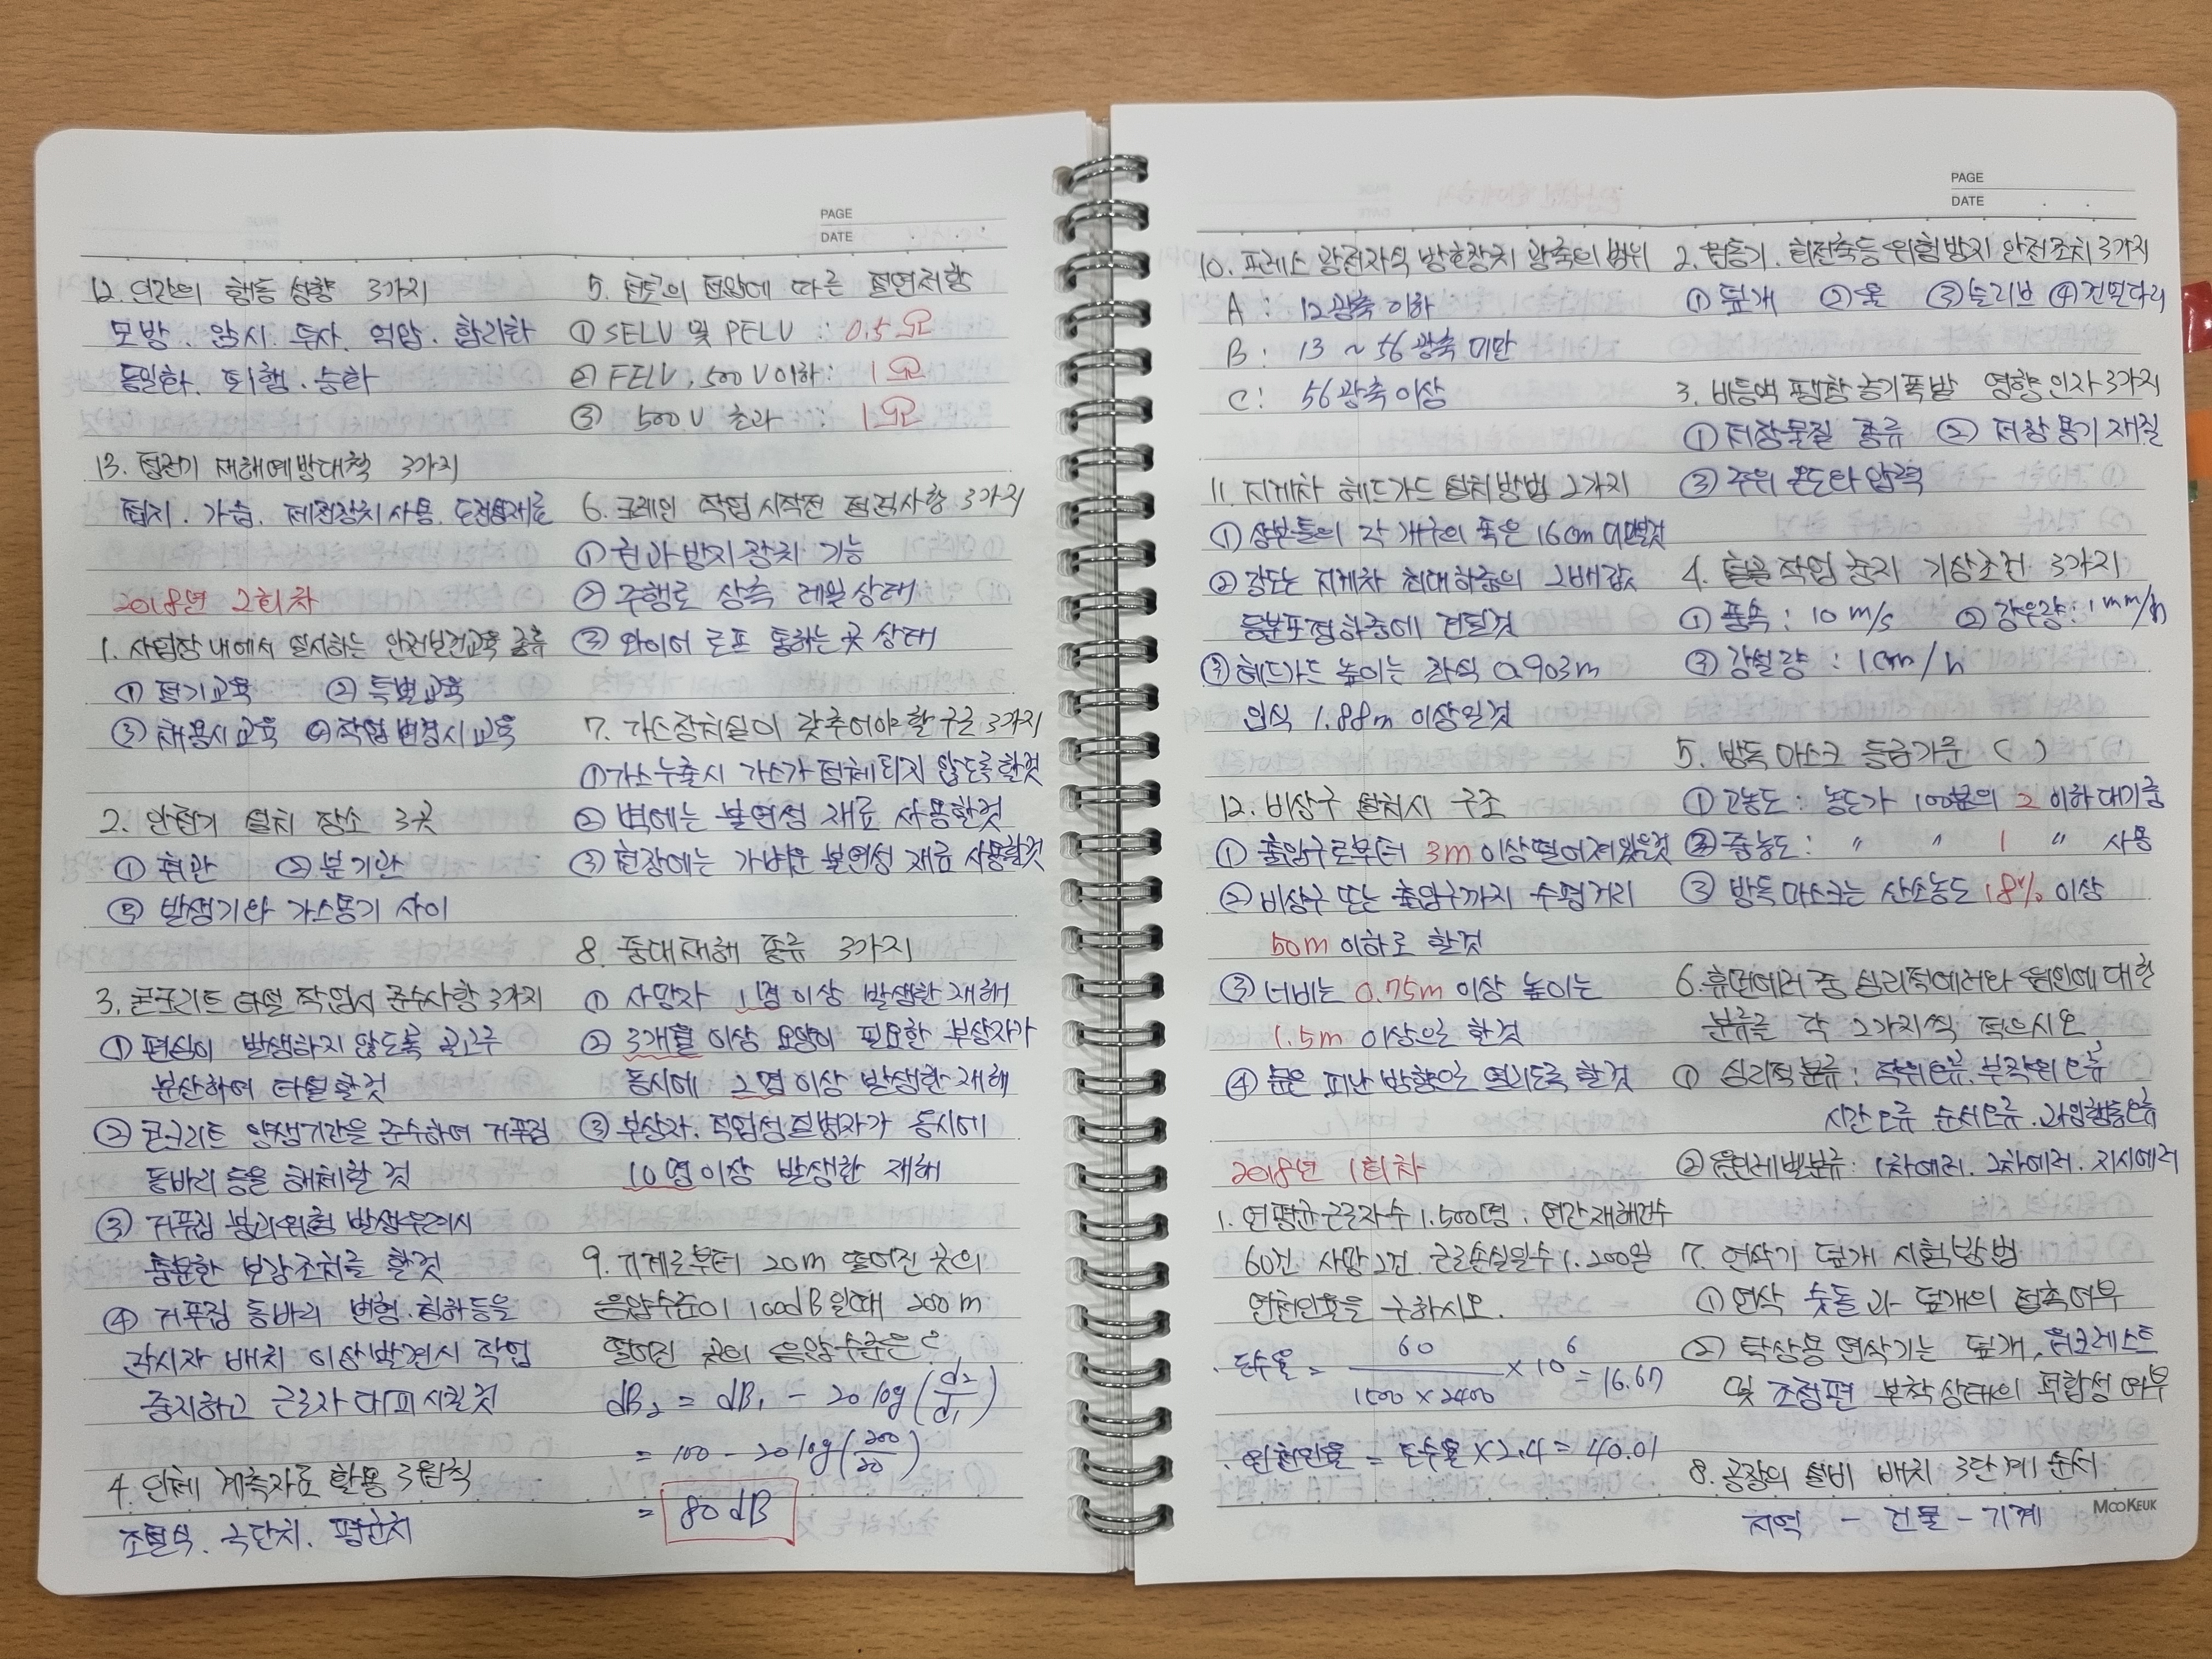 PAGE
DATE
12. 인간의 행동 성향 3가지
모방. 암시. 투사. 억압. 합리화
동일화. 퇴행. 승화
13. 정전기 재해예방대책 3가지
접지. 가습. 제전장치 사용. 도전성재료
2018년 2회차
1. 사업장 내에서 실시하는 안전보건교육 종류
① 정기교육 ② 특별교육
③ 채용시교육 ④ 작업변경시교육
2. 안전기 설치 장소 3곳
① 취관 ② 분기관
③ 발생기와 가스용기 사이
3. 콘크리트 타설 작업시 준수사항 3가지
① 편심이 발생하지 않도록 골고루
분산하여 타설할것
② 콘크리트 양생기간을 준수하여 거푸집
동바리 등을 해체할 것
③ 거푸집 붕괴위험 발생우려시
충분한 보강조치를 할것
④ 거푸집 동바리 변형. 침하등을
감시자 배치 이상발견시 작업
중지하고 근로자 대피시킬것
4. 인체 계측자료 활용 3원칙
조절식. 극단치. 평균치
5. 전로의 전압에 따른 절연저항
① SELV 및 PELV : 0.5 MΩ
② FELV, 500V이하: 1 MΩ
③ 500V 초과 : 1MΩ
6. 크레인 작업시작전 점검사항 3가지
① 권과방지장치 기능
② 주행로 상측 레일상태
③ 와이어 로프 통하는 곳 상태
7. 가스장치실이 갖추어야할 구조 3가지
① 가스누출시 가스가 정체되지 않도록 할것
② 벽에는 불연성 재료 사용할것
③ 천장에는 가벼운 불연성 재료 사용할것
8. 중대재해 종류 3가지
① 사망자 1명 이상 발생한 재해
② 3개월 이상 요양이 필요한 부상자가
동시에 2명 이상 발생한 재해
③ 부상자. 직업성질병자가 동시에
10명 이상 발생한 재해
9. 기계로부터 20m 떨어진 곳의
음압수준이 100dB일때 200m
떨어진 곳의 음압수준은?
dB₂ = dB₁ - 20 log(d₂/d₁)
= 100 - 20 log(200/20)
= 80 dB
PAGE
DATE
10. 프레스 광전자식 방호장치 광축의 범위
A : 12광축이하
B : 13 ~ 56광축 미만
C : 56광축이상
11. 지게차 헤드가드 설치방법 2가지
① 상부틀의 각 개구의 폭은 16cm 미만일것
② 강도는 지게차 최대하중의 2배값
등분포정하중에 견딜것
③ 헤드가드 높이는 좌식 0.903m
입식 1.88m 이상일것
12. 비상구 설치시 구조
① 출입구로부터 3m 이상떨어져있을것
② 비상구 또는 출입구까지 수평거리
50m 이하로 할것
③ 너비는 0.75m 이상 높이는
1.5m 이상으로 할것
④ 문은 피난 방향으로 열리도록 할것
2018년 1회차
1. 연평균근로자수 1.500명. 연간재해건수
60건. 사망 2건. 근로손실일수 1.200일
연천인율을 구하시오.
· 도수율 = 60/(1500 × 2400) × 10⁶ = 16.67
· 연천인율 = 도수율 × 2.4 = 40.01
2. 원동기. 회전축등 위험방지 안전조치 3가지
① 덮개 ② 울 ③ 슬리브 ④ 건널다리
3. 비등액 팽창 증기폭발 영향인자 3가지
① 저장물질 종류 ② 저장용기 재질
③ 주위 온도와 압력
4. 철골작업 중지 기상조건 3가지
① 풍속 : 10 m/s ② 강우량 : 1mm/h
③ 강설량 : 1cm/h
5. 방독마스크 등급기준 ( )
① 고농도 : 농도가 100분의 2 이하 대기중
② 중농도 : 〃 〃 1 〃 사용
③ 방독마스크는 산소농도 18% 이상
6. 휴먼에러 중 심리적에러와 원인에 대한
분류를 각 2가지씩 적으시오
① 심리적분류 : 작위오류. 부작위오류
시간오류 순서오류. 과잉행동오류
② 원인레벨분류 : 1차에러. 2차에러. 지시에러
7. 연삭기 덮개 시험방법
① 연삭 숫돌과 덮개의 접촉여부
② 탁상용 연삭기는 덮개, 워크레스트
및 조정편 부착상태의 적합성 여부
8. 공장의 설비 배치 3단계 순서
지역 - 건물 - 기계
MOOKEUK